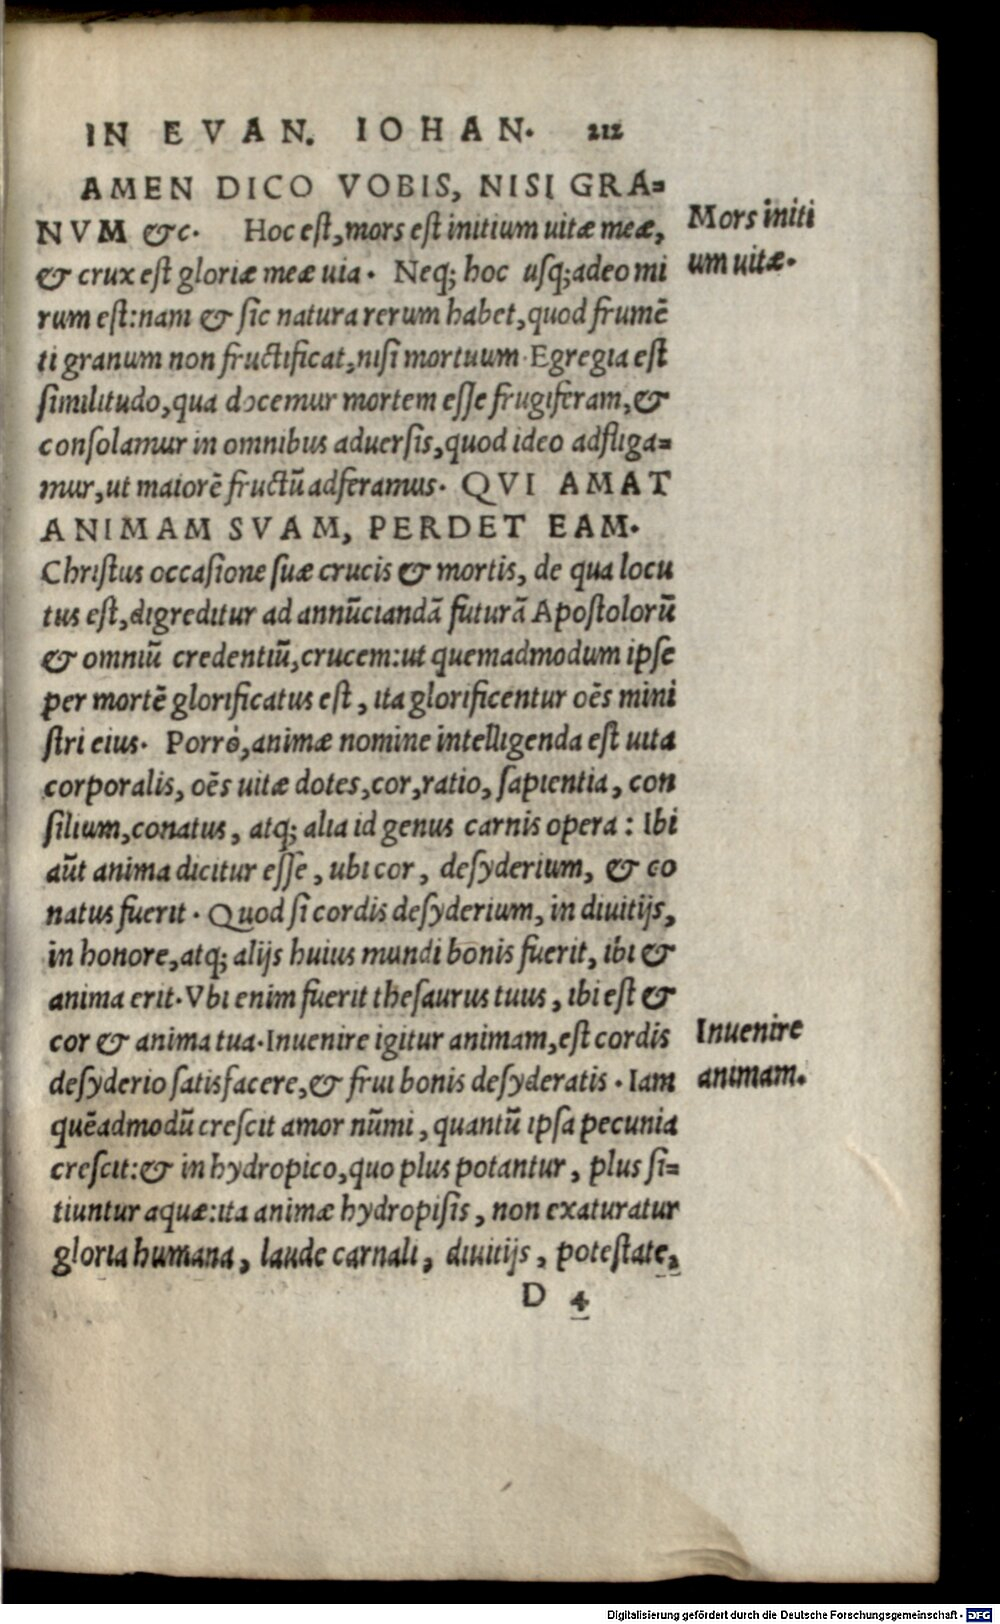 IN EVAN. IOHAN. 212
AMEN DICO VOBIS, NISI GRA=
NVM &c. Hoc est, mors est initium uitæ meæ,
& crux est gloriæ meæ uia. Neq; hoc usq; adeo mi
rum est: nam & sic natura rerum habet, quod frumē
ti granum non fructificat, nisi mortuum. Egregia est
similitudo, qua docemur mortem esse frugiferam, &
consolamur in omnibus aduersis, quod ideo adfliga=
mur, ut maiorē fructū adferamus. QVI AMAT
ANIMAM SVAM, PERDET EAM.
Christus occasione suæ crucis & mortis, de qua locu
tus est, digreditur ad annūciandā futurā Apostolorū
& omniū credentiū, crucem: ut quemadmodum ipse
per mortē glorificatus est, ita glorificentur oēs mini
stri eius. Porrò, animæ nomine intelligenda est uita
corporalis, oēs uitæ dotes, cor, ratio, sapientia, con
silium, conatus, atq; alia id genus carnis opera: Ibi
aūt anima dicitur esse, ubi cor, desyderium, & co
natus fuerit. Quod si cordis desyderium, in diuitijs,
in honore, atq; alijs huius mundi bonis fuerit, ibi &
anima erit. Vbi enim fuerit thesaurus tuus, ibi est &
cor & anima tua. Inuenire igitur animam, est cordis
desyderio satisfacere, & frui bonis desyderatis. Iam
quēadmodū crescit amor nūmi, quantū ipsa pecunia
crescit: & in hydropico, quo plus potantur, plus si=
tiuntur aquæ: ita animæ hydropisis, non exaturatur
gloria humana, laude carnali, diuitijs, potestate,
D 4
Mors initi
um uitæ.
Inuenire
animam.
Digitalisierung gefördert durch die Deutsche Forschungsgemeinschaft - DFG